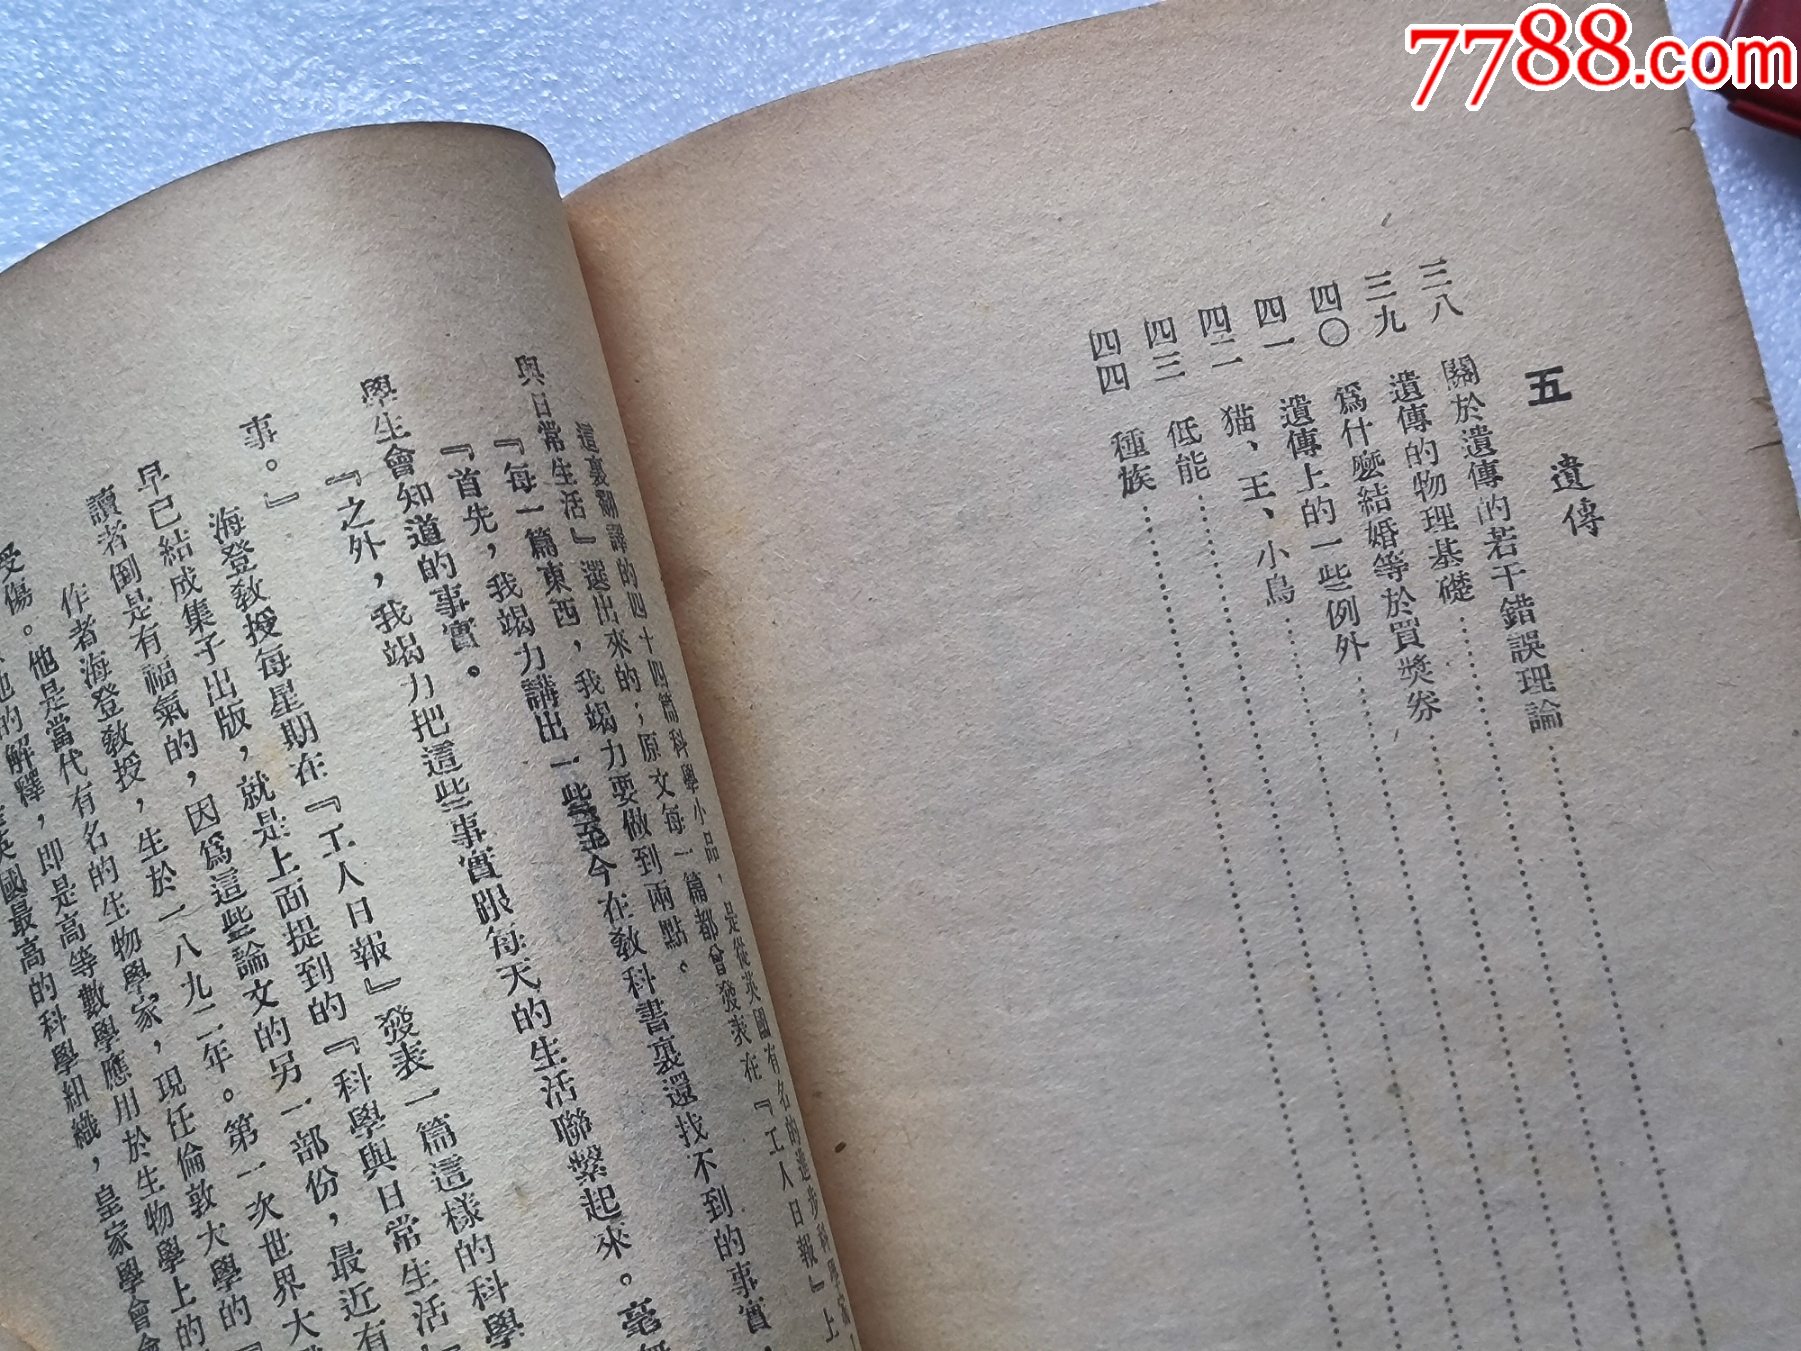 7788.com
五 遺傳
三八 關於遺傳的若干錯誤理論
三九 遺傳的物理基礎
四〇 爲什麼結婚等於買獎券
四一 遺傳上的一些例外
四二 猫、王、小鳥
四三 低能
四四 種族
這裏翻譯的四十四篇科學小品，是從英國有名的進步科學家
與日常生活』選出來的；原文每一篇都曾發表在『工人日報』上
『每一篇東西，我竭力要做到兩點。
『首先，我竭力講出一些至今在教科書裏還找不到的事實，
學生會知道的事實。
『之外，我竭力把這些事實跟每天的生活聯繫起來。毫無
事。』
海登教授每星期在『工人日報』發表一篇這樣的科學
早已結成集子出版，就是上面提到的『科學與日常生活
讀者倒是有福氣的，因爲這些論文的另一部份，最近有
作者海登教授，生於一八九二年。第一次世界大
受傷。他是當代有名的生物學家，現任倫敦大學的
他的解釋，即是高等數學應用於生物學上的
英國最高的科學組織，皇家學會會